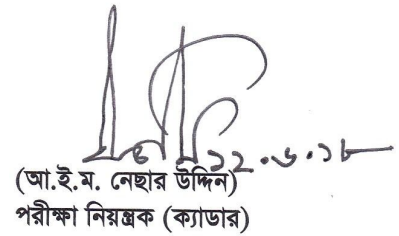 ১২.৬.১৮
(আ.ই.ম. নেছার উদ্দিন)
পরীক্ষা নিয়ন্ত্রক (ক্যাডার)